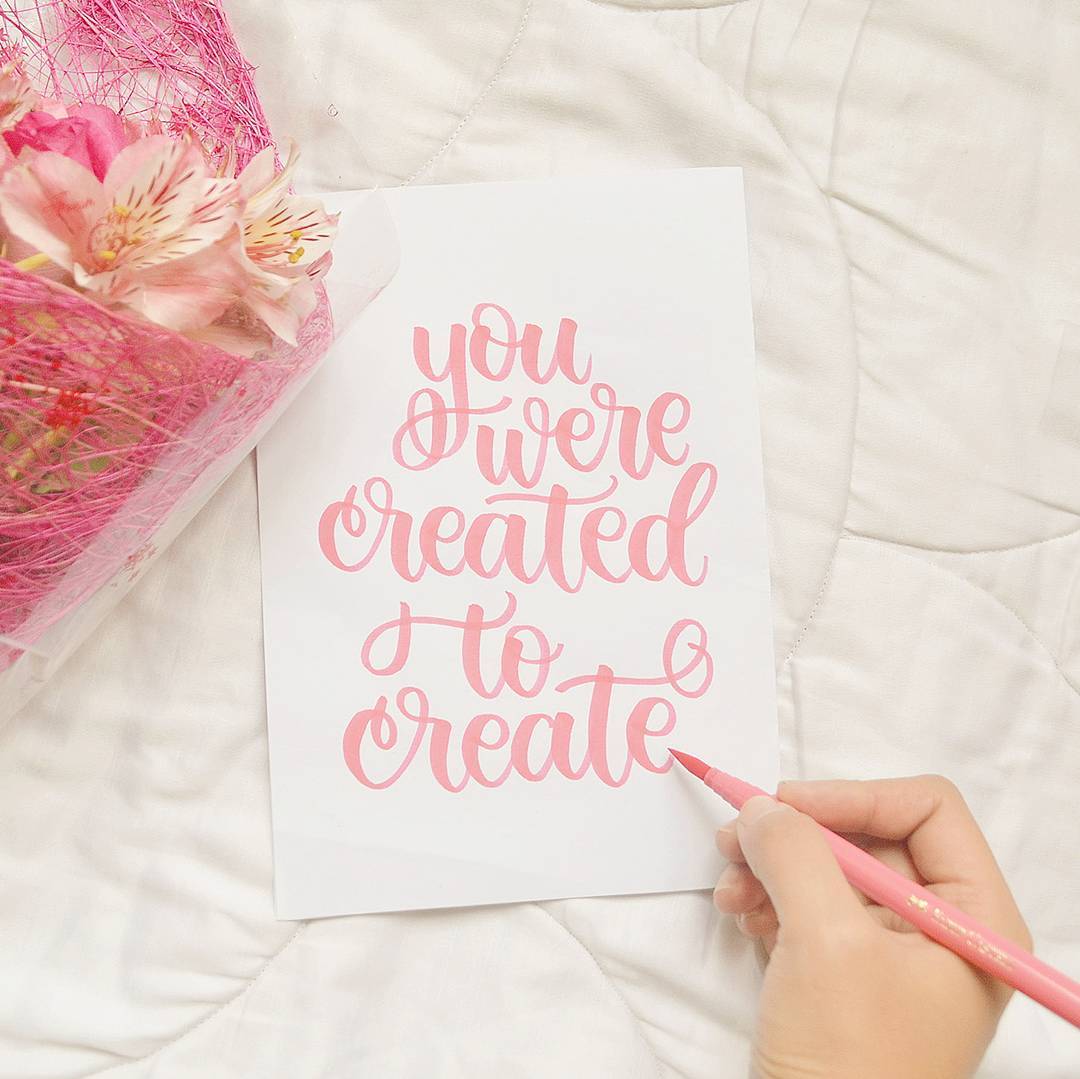 you
were
created
to
create